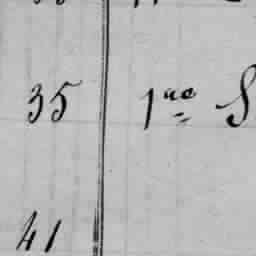 35 1ae S
41